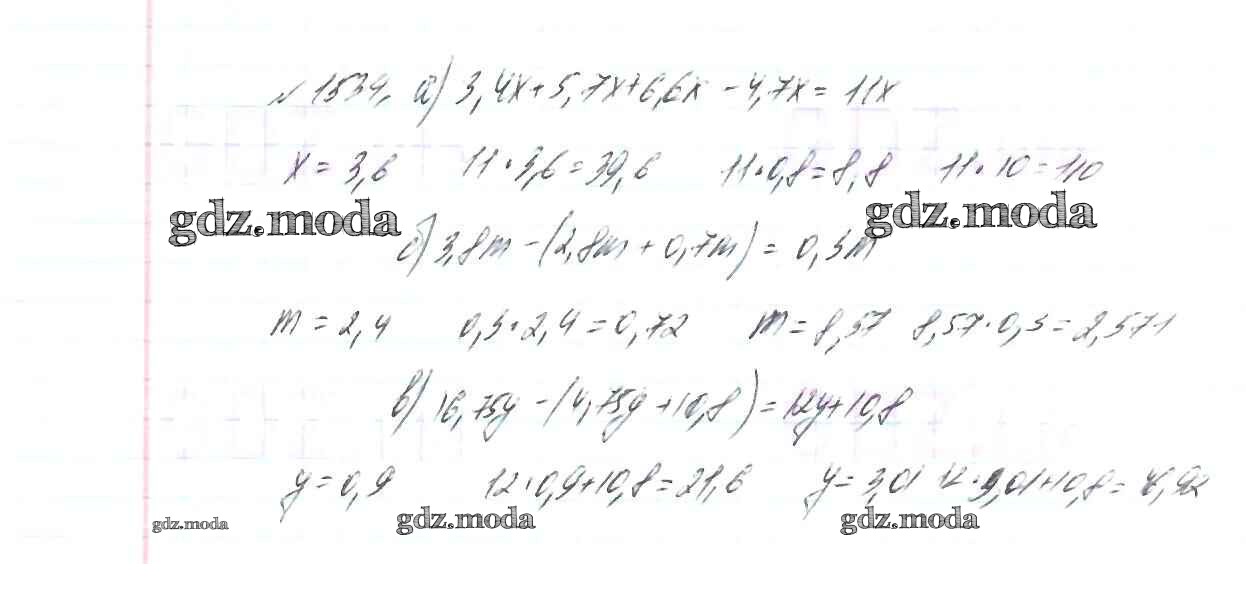 № 1534. а) 3,4x + 5,7x + 6,6x - 4,7x = 11x
x = 3,6 11 · 3,6 = 39,6 11 · 0,8 = 8,8 11 · 10 = 110
gdz.moda gdz.moda
б) 3,8m - (2,8m + 0,7m) = 0,3m
m = 2,4 0,3 · 2,4 = 0,72 m = 8,57 8,57 · 0,3 = 2,571
в) 16,75y - (4,75y + 10,8) = 12y + 10,8
y = 0,9 12 · 0,9 + 10,8 = 21,6 y = 3,01 12 · 3,01 + 10,8 =
gdz.moda gdz.moda gdz.moda